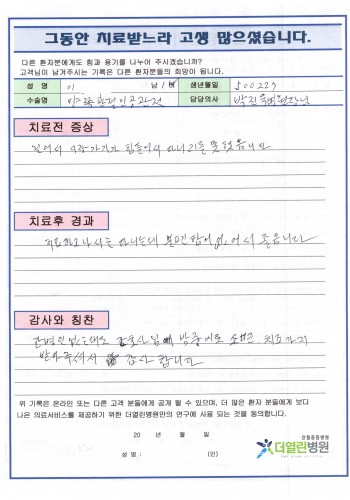 그동안 치료받느라 고생 많으셨습니다.
다른 환자분에게도 힘과 용기를 나누어 주시겠습니까?
고객님이 남겨주시는 기록은 다른 환자분들의 희망이 됩니다.
성 명 이 남 / 여 생년월일 500229
수술명 양쪽 인공관절 담당의사 박진 원장님
치료전 증상
걸어서 시장가기가 힘들어서 다니지를 못했습니다
치료후 경과
치료하고 나서는 다니는데 불편함이 없어서 좋습니다
감사와 칭찬
간병인 없는데도 간호사님 방중이로 치료까지
받아주셔서 감사합니다
위 기록은 온라인 또는 다른 고객 분들에게 공개 될 수 있으며, 더 많은 환자 분들에게 보다
나은 의료서비스를 제공하기 위한 더열린병원만의 연구에 사용 되는 것을 동의합니다.
20 년 월 일
성 명 : (인)
관절중점병원
더열린병원